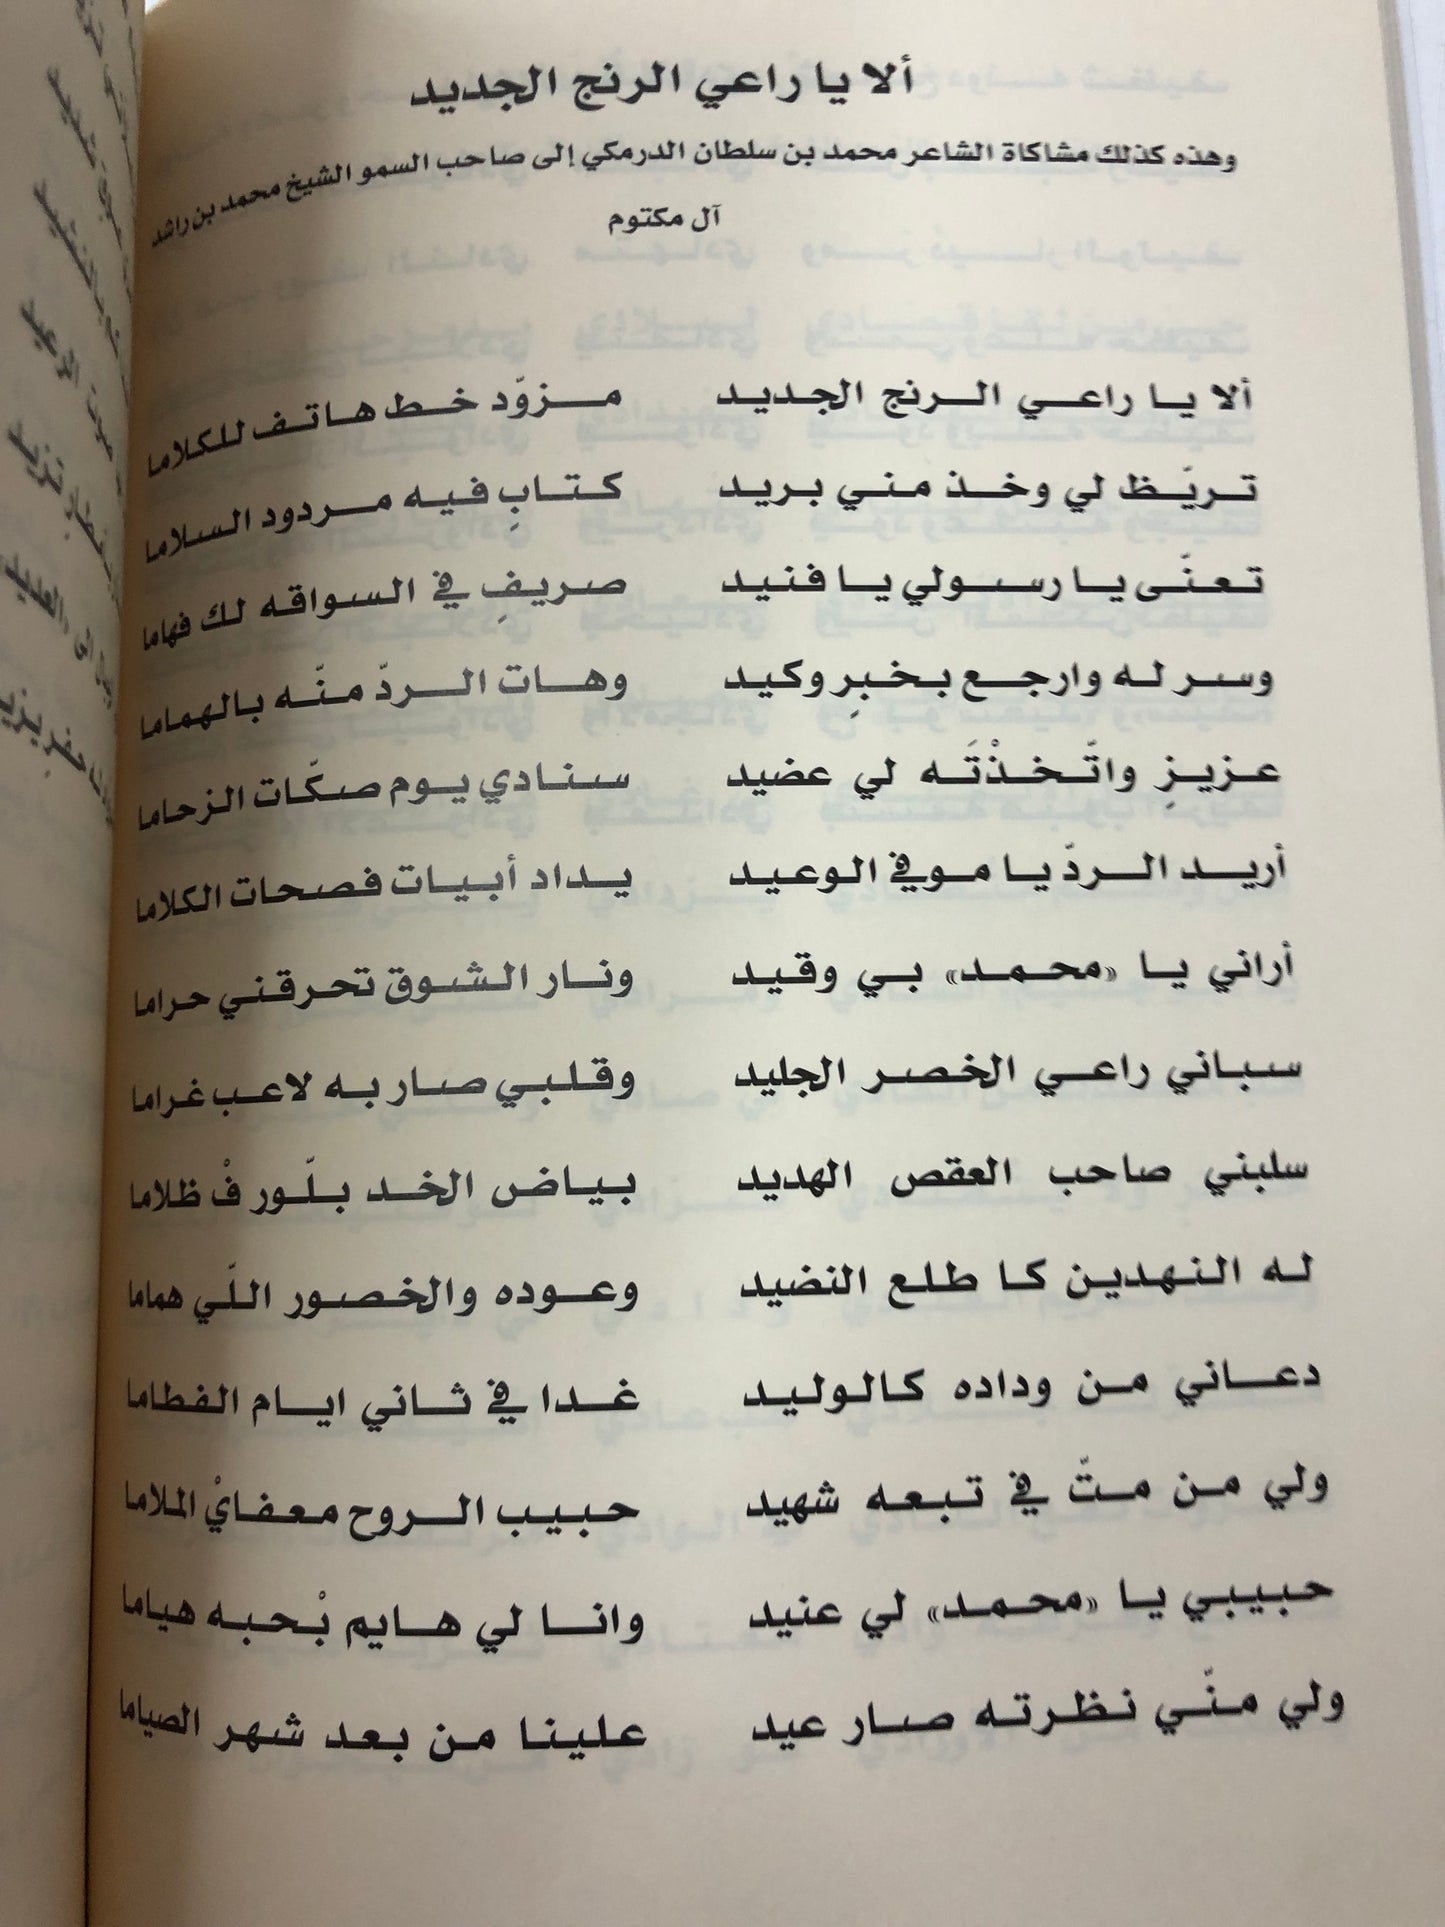 ألا يا راعي الرنج الجديد
وهذه كذلك مشاكاة الشاعر محمد بن سلطان الدرمكي إلى صاحب السمو الشيخ محمد بن راشد
آل مكتوم
ألا يا راعي الرنج الجديد مزوّد خط هاتف للكلاما
تريّظ لي وخذ مني بريد كتابٍ فيه مردود السلاما
تعنّى يا رسولي يا فنيد صريفٍ في السواقه لك فهاما
وسر له وارجع بخبرٍ وكيد وهات الردّ منّه بالهماما
عزيزٍ واتّخذْتَه لي عضيد سنادي يوم صكّات الزحاما
أريد الردّ يا موفي الوعيد يداد أبيات فصحات الكلاما
أراني يا «محمد» بي وقيد ونار الشوق تحرقني حراما
سباني راعي الخصر الجليد وقلبي صار به لاعب غراما
سلبني صاحب العقص الهديد بياض الخد بلّور فْ ظلاما
له النهدين كا طلع النضيد وعوده والخصور اللّي هماما
دعاني من وداده كالوليد غدا في ثاني ايام الفطاما
ولي من متّ في تبعه شهيد حبيب الروح معفايْ الملاما
حبيبي يا «محمد» لي عنيد وانا لي هايم بْحبه هياما
ولي منّي نظرته صار عيد علينا من بعد شهر الصياما